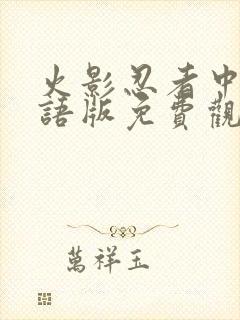 火影忍者中
語版免費觀
萬祥玉